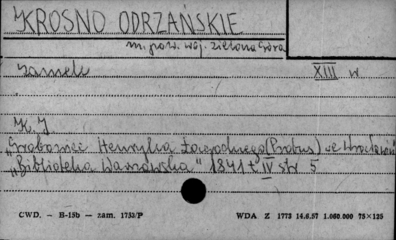 KROSNO ODRZAŃSKIE
m. pow. woj. Zielona Góra
zamek XIII w
K. J
„Grobowiec Henryka Łagodnego (Probus) we Wrocławiu"
„Biblioteka Warszawska" 1841 t IV str 5
CWD. - H-15b - zam. 1753/P WDA Z 1773 14.6.57 1.060.000 75×125